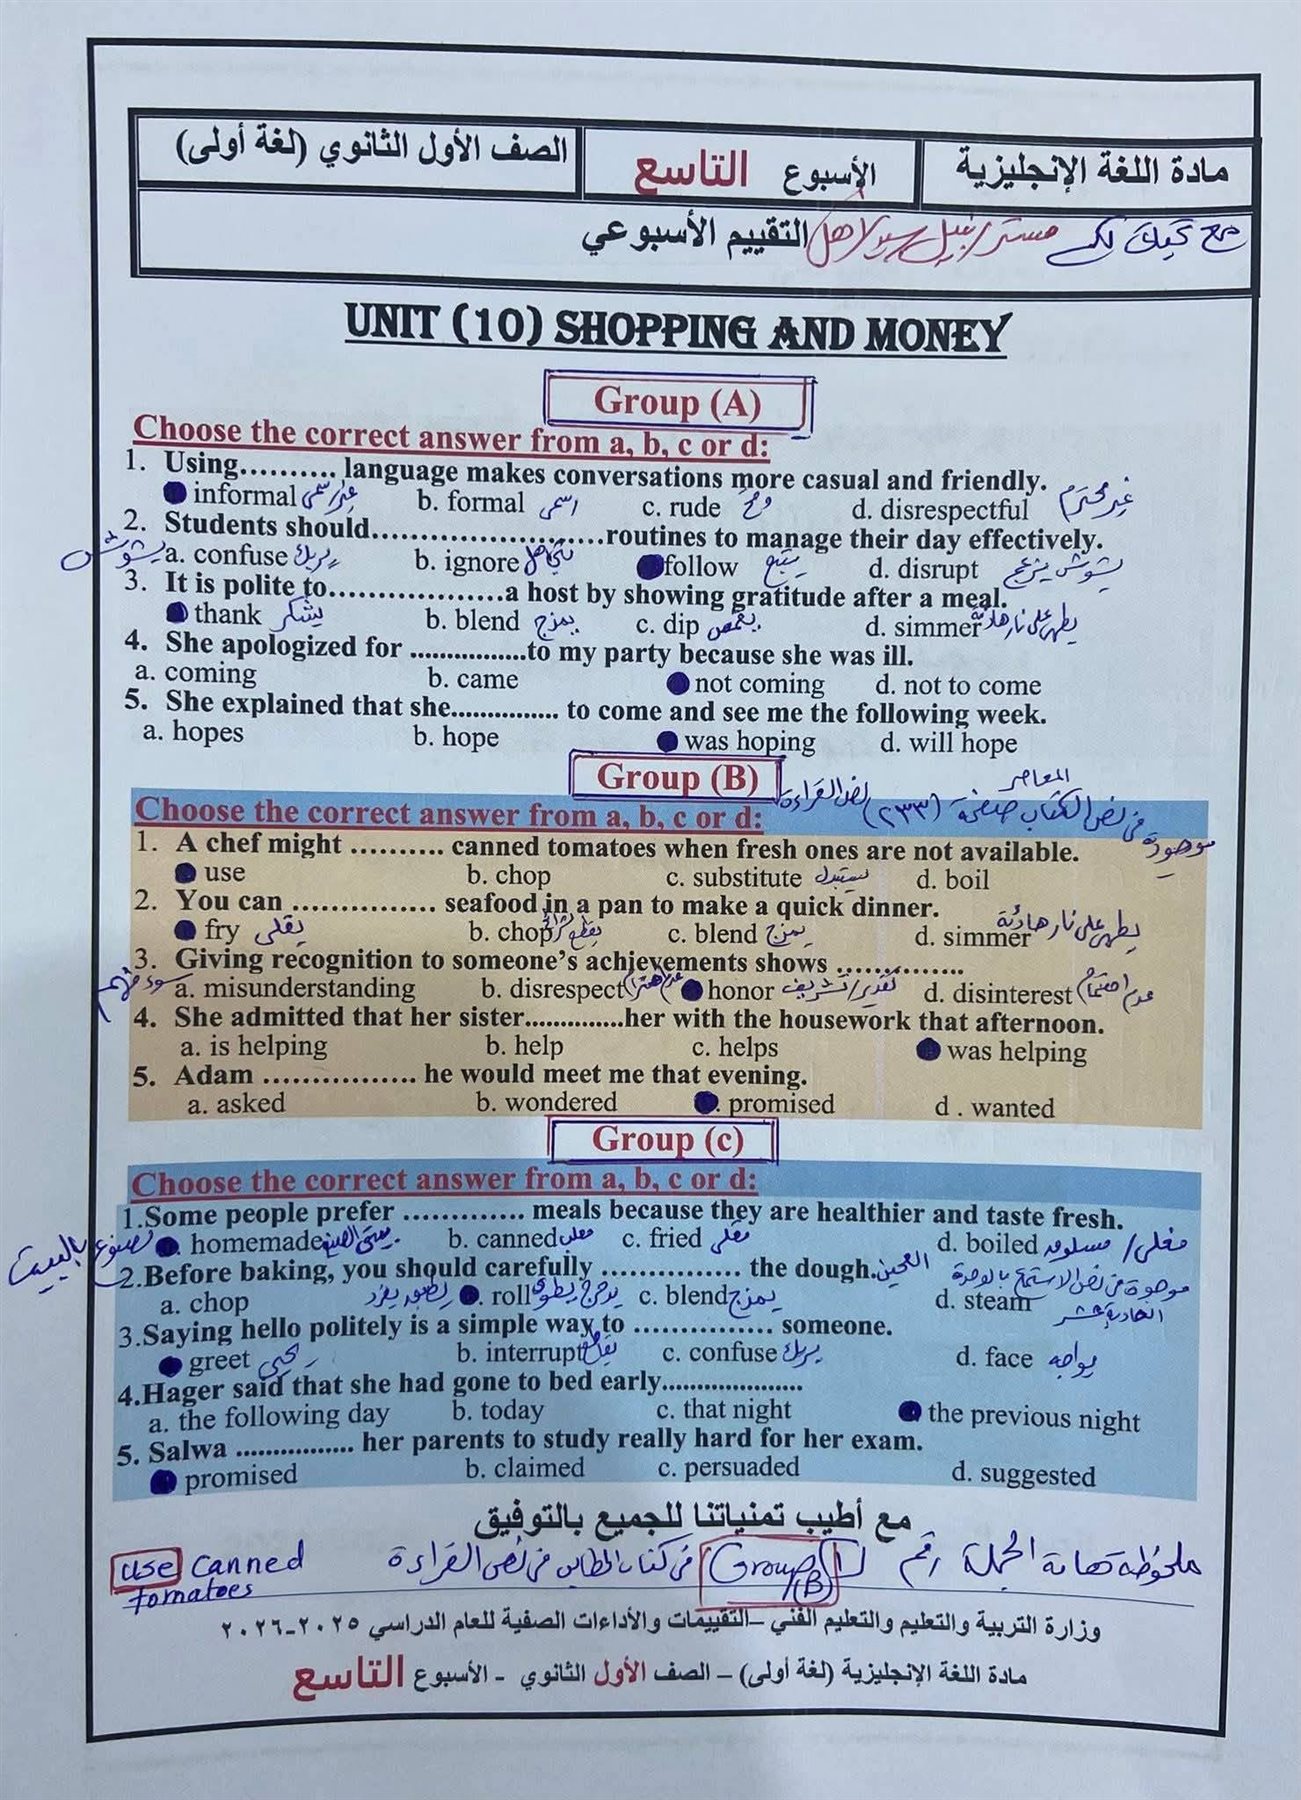 مادة اللغة الإنجليزية الأسبوع التاسع الصف الأول الثانوي (لغة أولى)
مع تحيات لكم مستر/ نبيل التقييم الأسبوعي
UNIT (10) SHOPPING AND MONEY
Group (A)
Choose the correct answer from a, b, c or d:
1. Using.......... language makes conversations more casual and friendly.
informal غير رسمى b. formal رسمى c. rude وقح d. disrespectful غير محترم
2. Students should........................routines to manage their day effectively.
يشوش a. confuse يربك b. ignore يتجاهل follow يتبع d. disrupt يشوش يزعج
3. It is polite to..................a host by showing gratitude after a meal.
thank يشكر b. blend يمزج c. dip يغمس d. simmer يطهى على نار هادئة
4. She apologized for ................to my party because she was ill.
a. coming b. came not coming d. not to come
5. She explained that she............... to come and see me the following week.
a. hopes b. hope was hoping d. will hope
Group (B)
المعاصر
Choose the correct answer from a, b, c or d: موجودة فى نص الكتاب صفحة (٢٣٣) نص القراءة
1. A chef might .......... canned tomatoes when fresh ones are not available.
use b. chop c. substitute يستبدل d. boil
2. You can ............... seafood in a pan to make a quick dinner.
fry يقلى b. chop يقطع شرائح c. blend يمزج d. simmer يطهى على نار هادئة
3. Giving recognition to someone's achievements shows .............
سوء فهم a. misunderstanding b. disrespect عدم احترام honor تقدير/تشريف d. disinterest عدم اهتمام
4. She admitted that her sister..............her with the housework that afternoon.
a. is helping b. help c. helps was helping
5. Adam ................ he would meet me that evening.
a. asked b. wondered promised d . wanted
Group (c)
Choose the correct answer from a, b, c or d:
1.Some people prefer ............. meals because they are healthier and taste fresh.
مصنوع بالبيت homemade b. canned معلب c. fried مقلى d. boiled مغلى/ مسلوق
2.Before baking, you should carefully ............... the dough. العجين موجودة فى نص الاستماع بالوحدة الحادية عشر
a. chop roll يدحرج يطوى c. blend يمزج d. steam
3.Saying hello politely is a simple way to ............... someone.
greet يحيى b. interrupt يقاطع c. confuse يربك d. face يواجه
4.Hager said that she had gone to bed early.....................
a. the following day b. today c. that night the previous night
5. Salwa ................. her parents to study really hard for her exam.
promised b. claimed c. persuaded d. suggested
مع أطيب تمنياتنا للجميع بالتوفيق
ملحوظة هامة الجملة رقم ١ Group (B) فى كتاب المعاصر فى نص القراءة use canned tomatoes
وزارة التربية والتعليم والتعليم الفني –التقييمات والأداءات الصفية للعام الدراسي ٢٠٢٥-٢٠٢٦
مادة اللغة الإنجليزية (لغة أولى) – الصف الأول الثانوي - الأسبوع التاسع